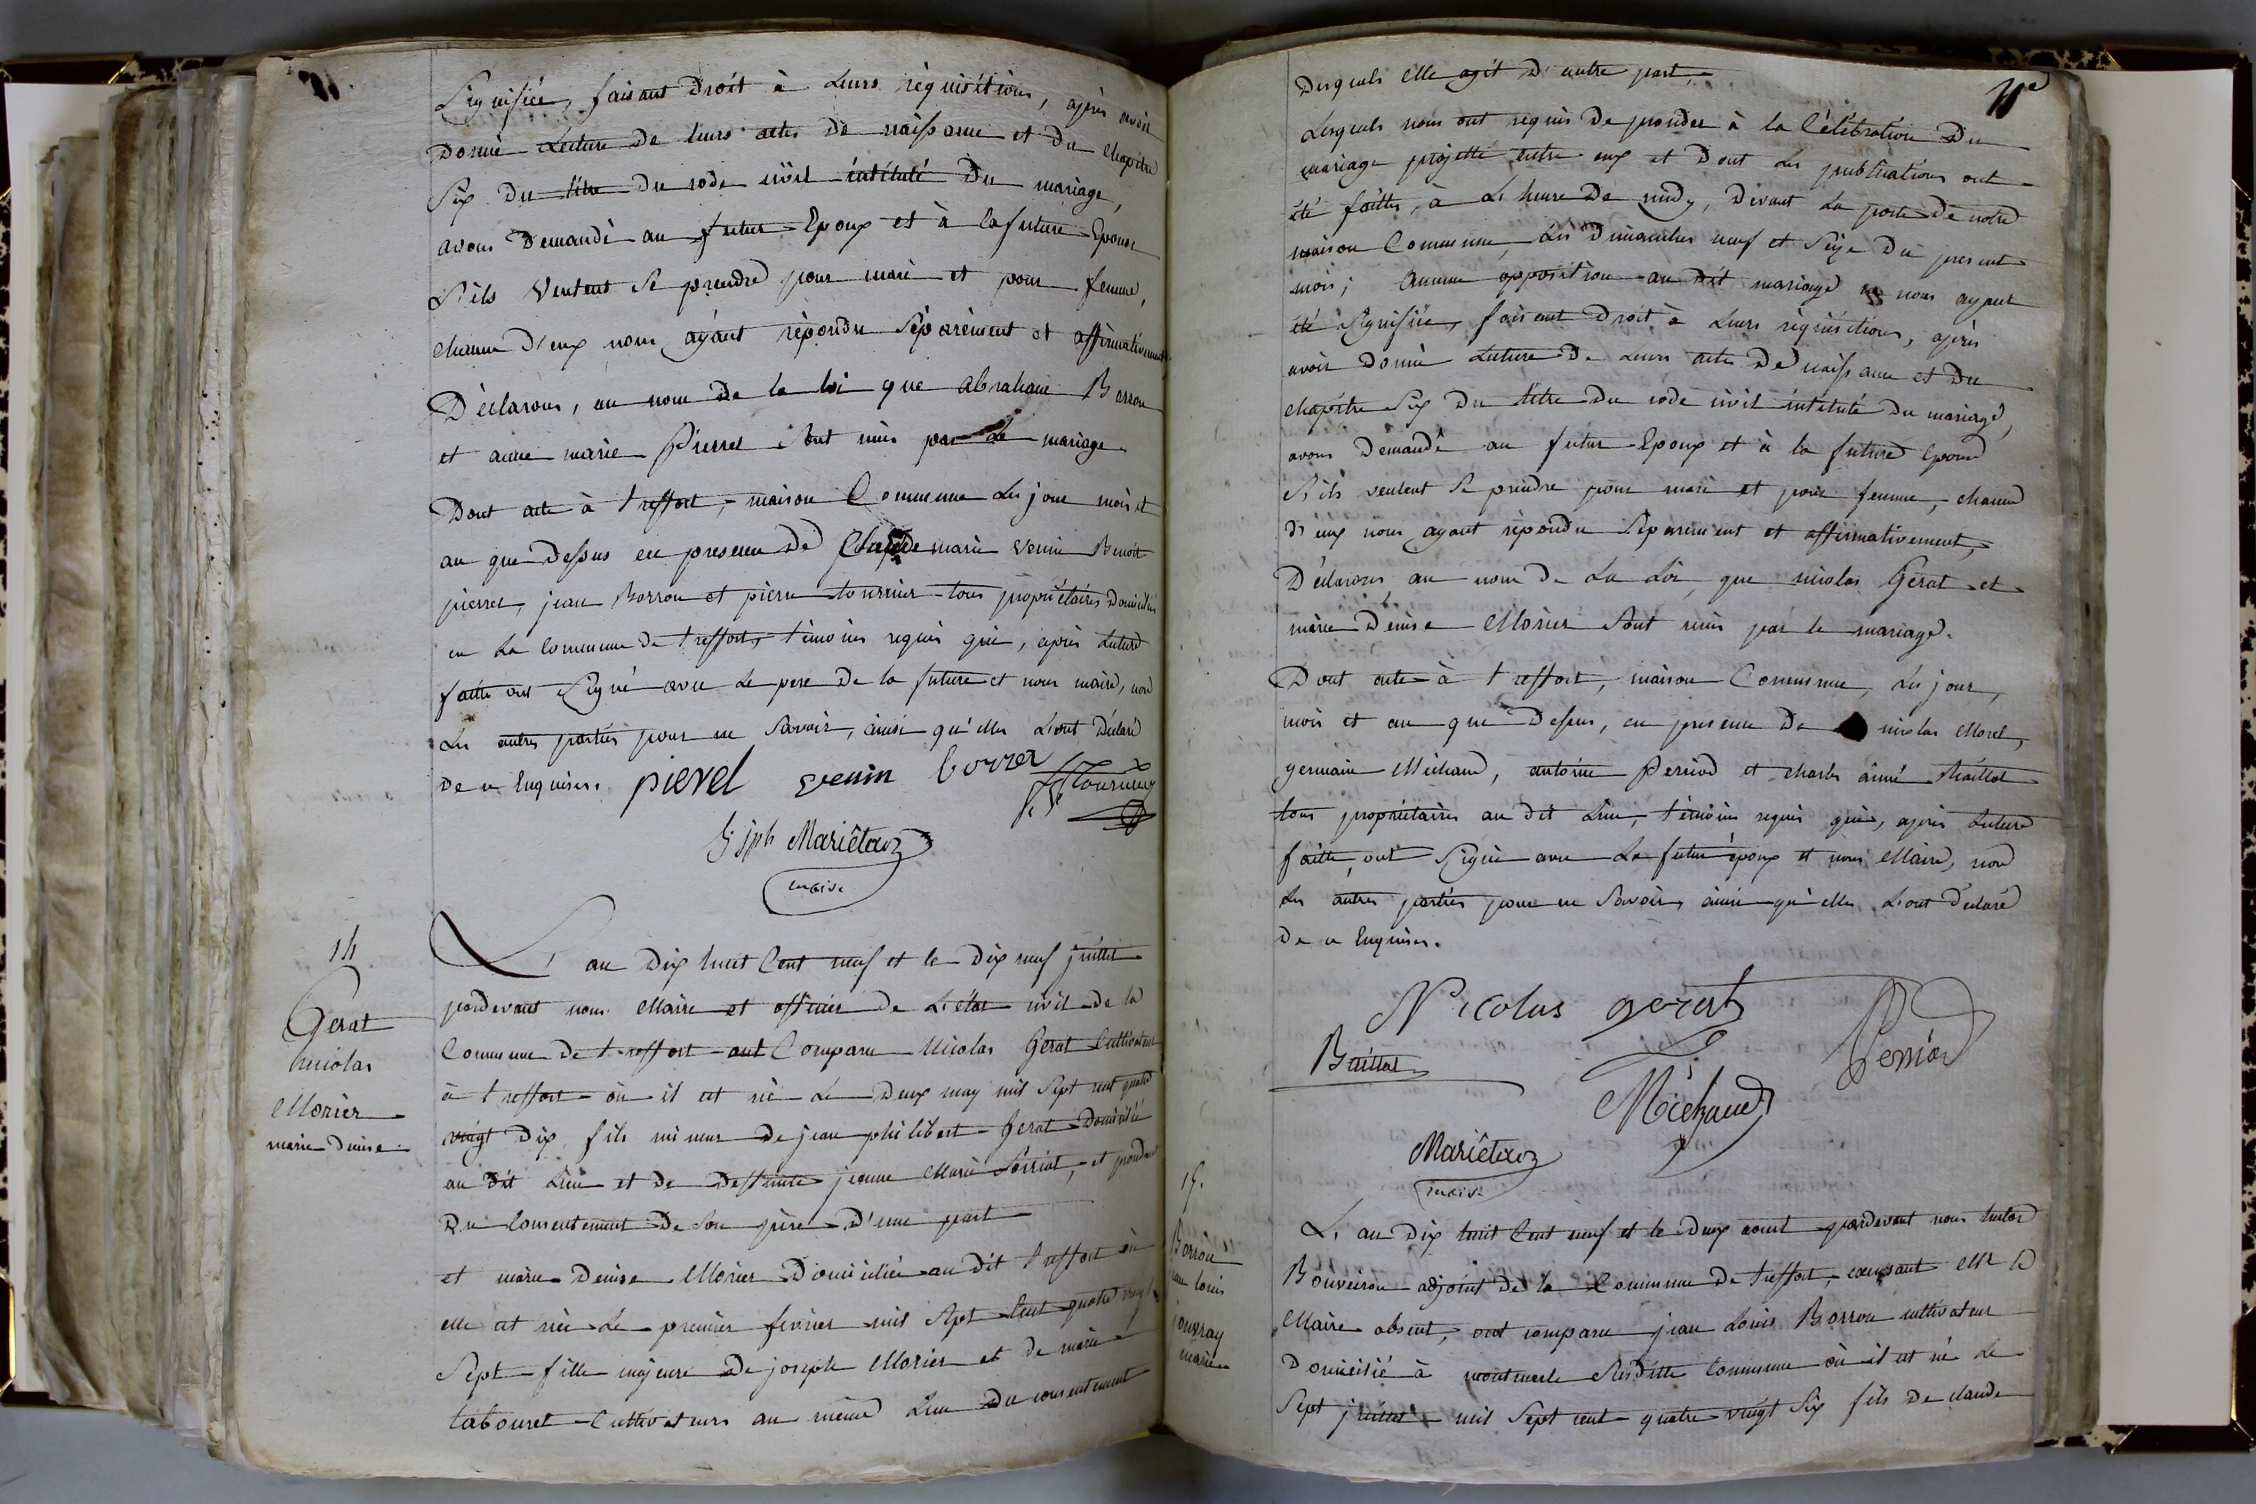 Signifiée, faisant Droit à Leurs réquisitions, après avoir
Donné Lecture De leurs actes de naissance et du chapitre
Six Du titre Du code civil intitulé Du mariage,
avons Demandé au futur Epoux et à la future Epouse
S'ils veulent Se prendre pour mari et pour femme,
chacun D'eux nous ayant répondu Séparément et affirmativement
Déclarons, au nom de la loi que abraham Borron
et anne marie Pierrel Sont unis par Le mariage.
Dont acte à treffort, maison Commune Les jour mois et
an que Dessus en presence De Claude marie venin Benoit
pierrel, jean Borron et pierre tournier tous propriétaires Domiciliés
en La Commune de treffort, témoins requis qui, après Lecture
faitte ont Signé avec Le pere De la future et nous maire, non
Les autres parties pour ne Savoir, ainsi qu'elles L'ont Déclaré
De ce Enquises. pierel venin borron Tournier
Jph Mariêtaoz
maire
14
Gerat
nicolas
Morier
marie Denise
L'an Dix huit Cent neuf et le Dix neuf juillet
pardevant nous Maire et officier de L'état civil de la
Commune De treffort ont Comparu Nicolas Gerat Cultivateur
à treffort où il est né Le Deux may mil Sept cent quatre
vingt Dix fils mineur De jean philibert Gerat Domicilié
au dit Lieu et De Deffunte jeanne Marie Sorriat, et procédant
Du Consentement De Son père D'une part
et marie Denise Morier Domiciliée au dit treffort où
elle est née Le premier fevrier mil Sept Cent quatre vingt
Sept fille majeure De joseph Morier et de marie
tabouret Cultivateurs au même Lieu Du consentement
Desquels elle agit D'autre part,
Lesquels nous ont requis De proceder à la Célébration Du
mariage projetté entre eux et Dont Les publications ont
été faittes, à L'heure De midy, Devant La porte De notre
maison Commune, Les Dimanches neuf et Seize Du present
mois; Aucune opposition au dit mariage ne nous ayant
été Signifiée, faisant Droit à Leurs réquisitions, après
avoir Donné Lecture De Leurs actes De naissance et Du
chapitre Six Du titre Du code civil intitulé Du mariage,
avons Demandé au futur Epoux et à la future Epouse
S'ils veulent Se prendre pour mari et pour femme, chacun
D'eux nous ayant répondu Séparément et affirmativement,
Déclarons, au nom De La Loi, que nicolas Gerat et
marie Denise Morier Sont unis par le mariage.
Dont acte à treffort, maison Commune, Les jour,
mois et an que Dessus, en presence De nicolas Morel,
germain Michaud, antoine Perriod et charles aimé Baillat
tous propriétaires au dit Lieu, témoins requis qui, après Lecture
faitte, ont Signé avec Le futur époux et nous Maire, non
Les autres parties pour ne Savoir, ainsi qu'elles L'ont Déclaré
De ce Enquises.
Nicolas gerat
Baillat Perriod
Michaud
Mariêtaoz
maire
15.
Borron
jean Louis
jouvray
marie
L'an Dix huit Cent neuf et le Deux aoust pardevant nous
Bouveiron adjoint de la Commune De treffort, Mr le
Maire absent, ont comparu jean Louis Borron cultivateur
Domicilié à montmerle Susditte Commune où il est né Le
Sept juillet mil Sept cent quatre vingt Six fils De claude